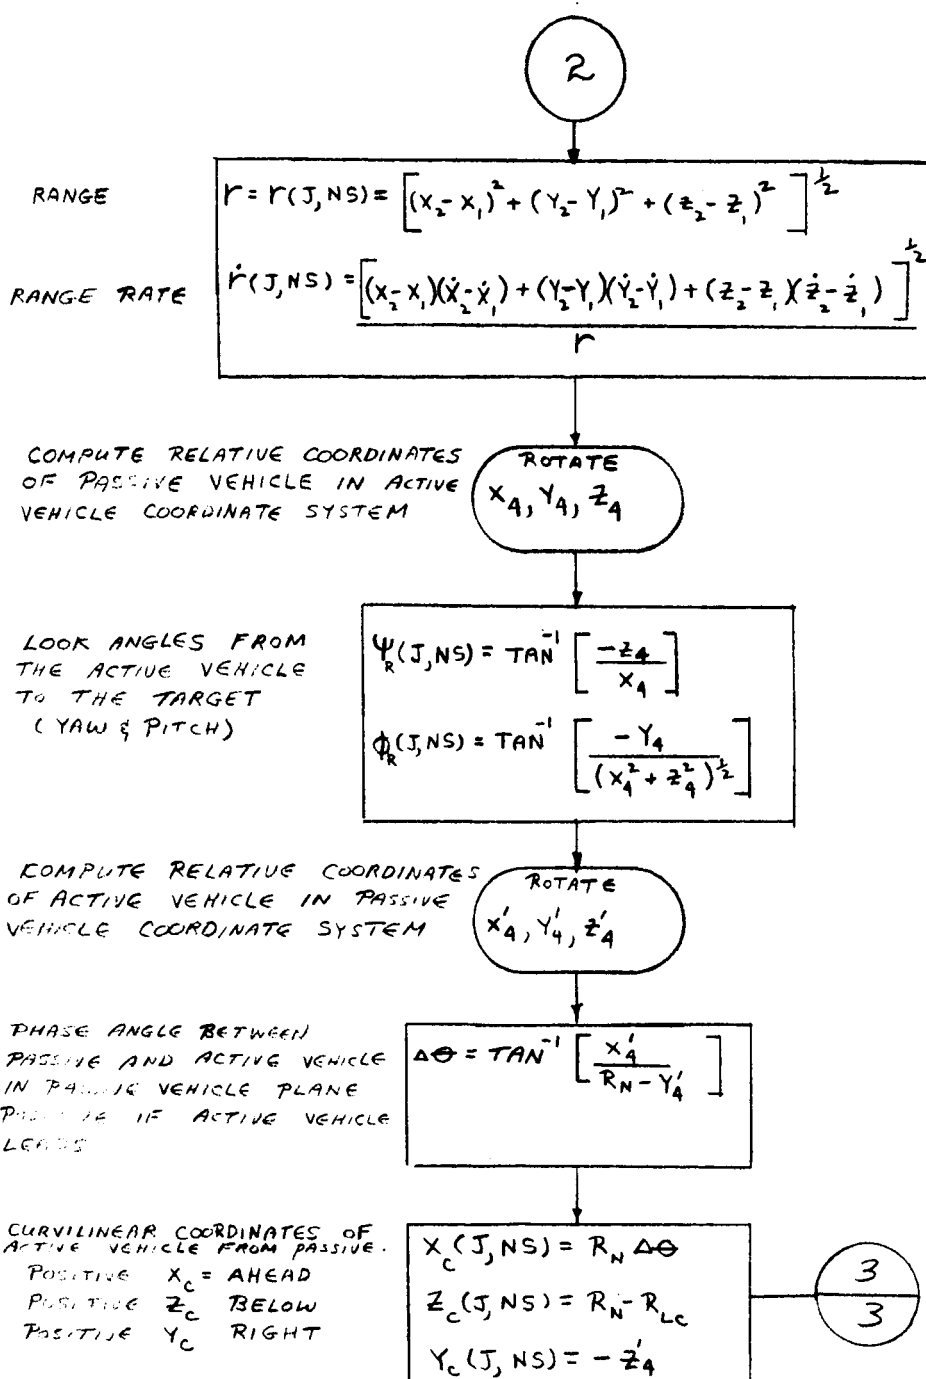 2
RANGE
r = r(J,NS) = [(X₂-X₁)² + (Y₂-Y₁)² + (Z₂-Z₁)²]^½
RANGE RATE
ṙ(J,NS) = [(X₂-X₁)(Ẋ₂-Ẋ₁) + (Y₂-Y₁)(Ẏ₂-Ẏ₁) + (Z₂-Z₁)(Ż₂-Ż₁)]^½
r
COMPUTE RELATIVE COORDINATES
OF PASSIVE VEHICLE IN ACTIVE
VEHICLE COORDINATE SYSTEM
ROTATE
X₄, Y₄, Z₄
LOOK ANGLES FROM
THE ACTIVE VEHICLE
TO THE TARGET
(YAW & PITCH)
Ψ_R(J,NS) = TAN⁻¹ [-Z₄ / X₄]
φ_R(J,NS) = TAN⁻¹ [-Y₄ / (X₄² + Z₄²)^½]
COMPUTE RELATIVE COORDINATES
OF ACTIVE VEHICLE IN PASSIVE
VEHICLE COORDINATE SYSTEM
ROTATE
X'₄, Y'₄, Z'₄
PHASE ANGLE BETWEEN
PASSIVE AND ACTIVE VEHICLE
IN PASSIVE VEHICLE PLANE
POSITIVE IF ACTIVE VEHICLE
LEADS
Δθ = TAN⁻¹ [X'₄ / R_N - Y'₄]
CURVILINEAR COORDINATES OF
ACTIVE VEHICLE FROM PASSIVE.
POSITIVE X_C = AHEAD
POSITIVE Z_C BELOW
POSITIVE Y_C RIGHT
X_C(J,NS) = R_N Δθ
Z_C(J,NS) = R_N - R_LC
Y_C(J,NS) = -Z'₄
3
3